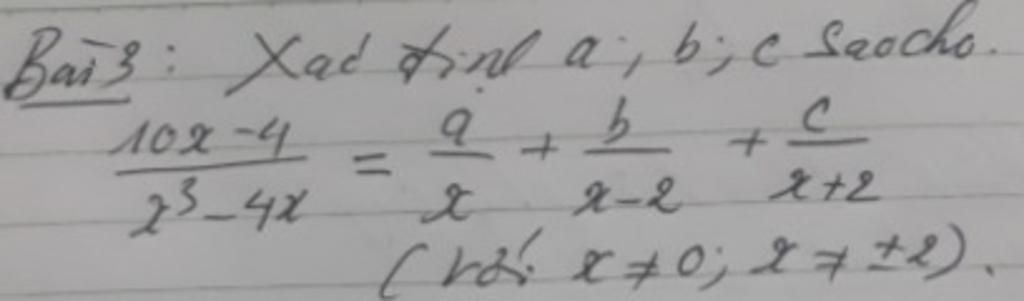 Bài 3: Xác định a; b; c sao cho.
\frac{10x-4}{x^3-4x} = \frac{a}{x} + \frac{b}{x-2} + \frac{c}{x+2}
(với x ≠ 0; x ≠ ±2).